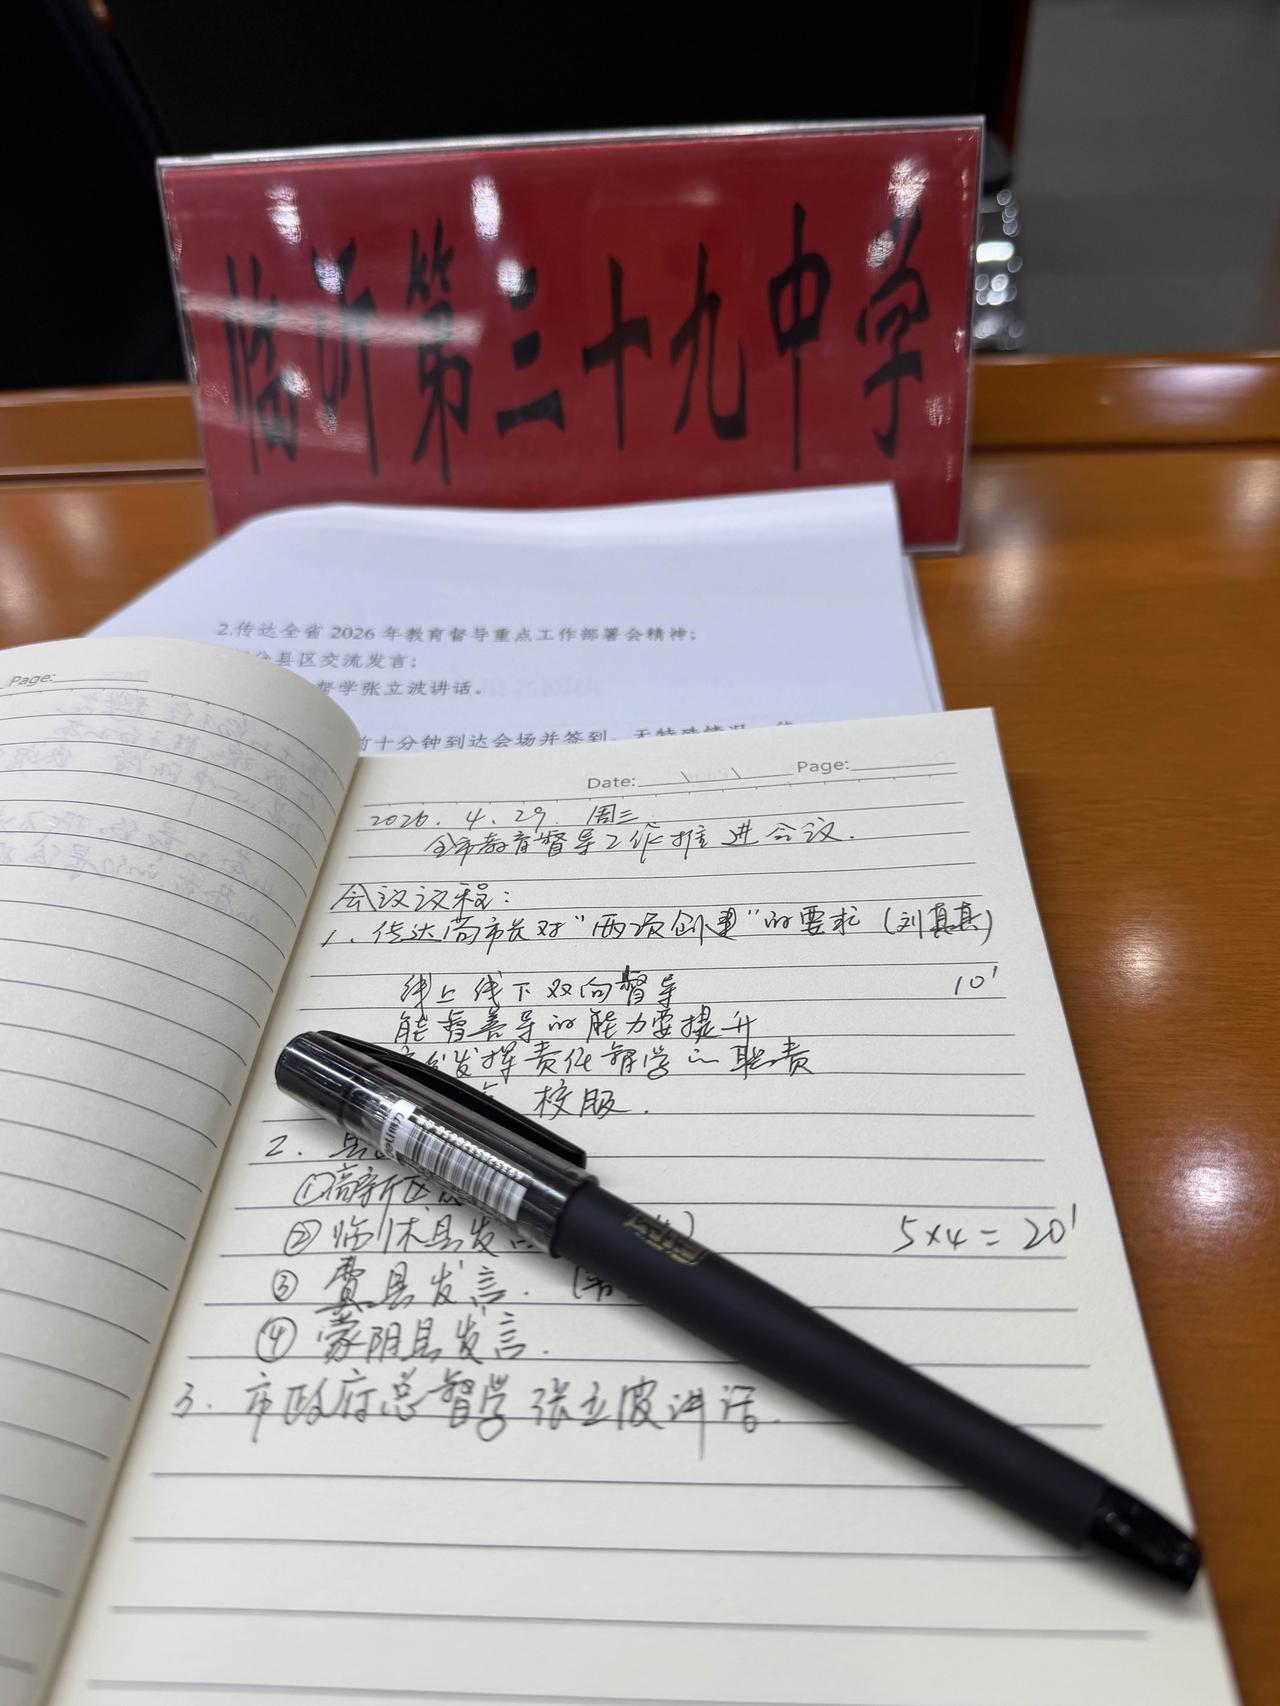 临沂第三十九中学
2.传达全省 2026 年教育督导重点工作部署会精神;
县区交流发言;
督学张立波讲话。
前十分钟到达会场并签到,无特殊情况
Page:
Date: Page:
2026. 4. 29. 周三.
全市教育督导工作推进会议.
会议议程:
1. 传达尚市长对“两项创建”的要求 (刘真真)
线上线下双向督导 10'
能督善导的能力要提升
发挥责任督学的职责
校服.
2.
①高新区
②临沭县发 5×4=20'
③ 费县发言.
④ 蒙阴县发言.
3. 市政府总督学张立波讲话.